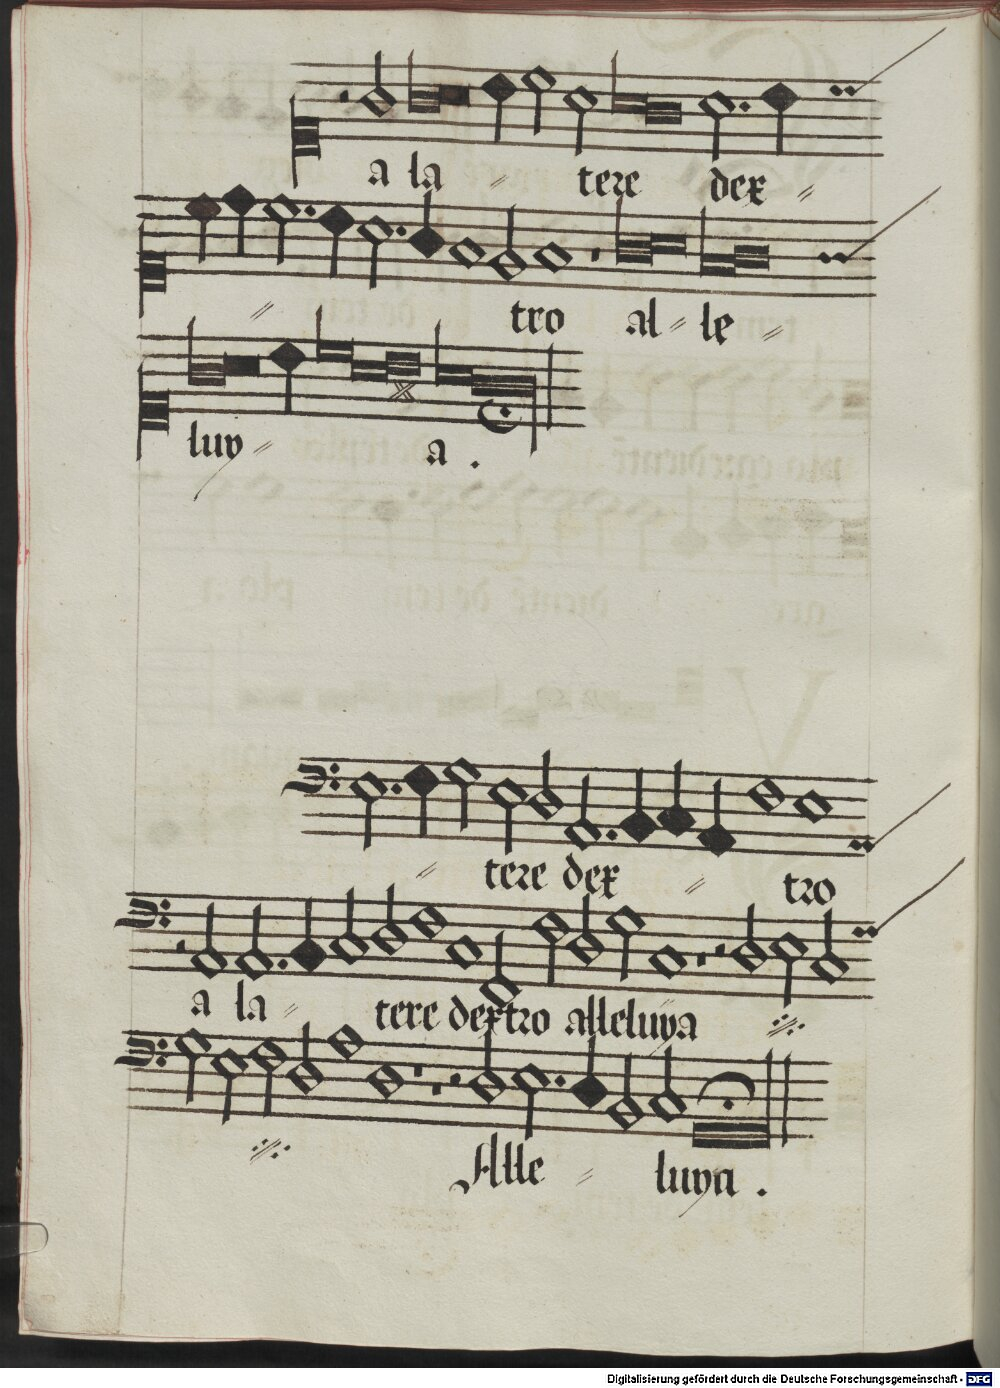 a la tere dex
tro al le
luy a .
tere dex tro
a la tere dextro alleluya
Alle luya .
Digitalisierung gefördert durch die Deutsche Forschungsgemeinschaft - DFG